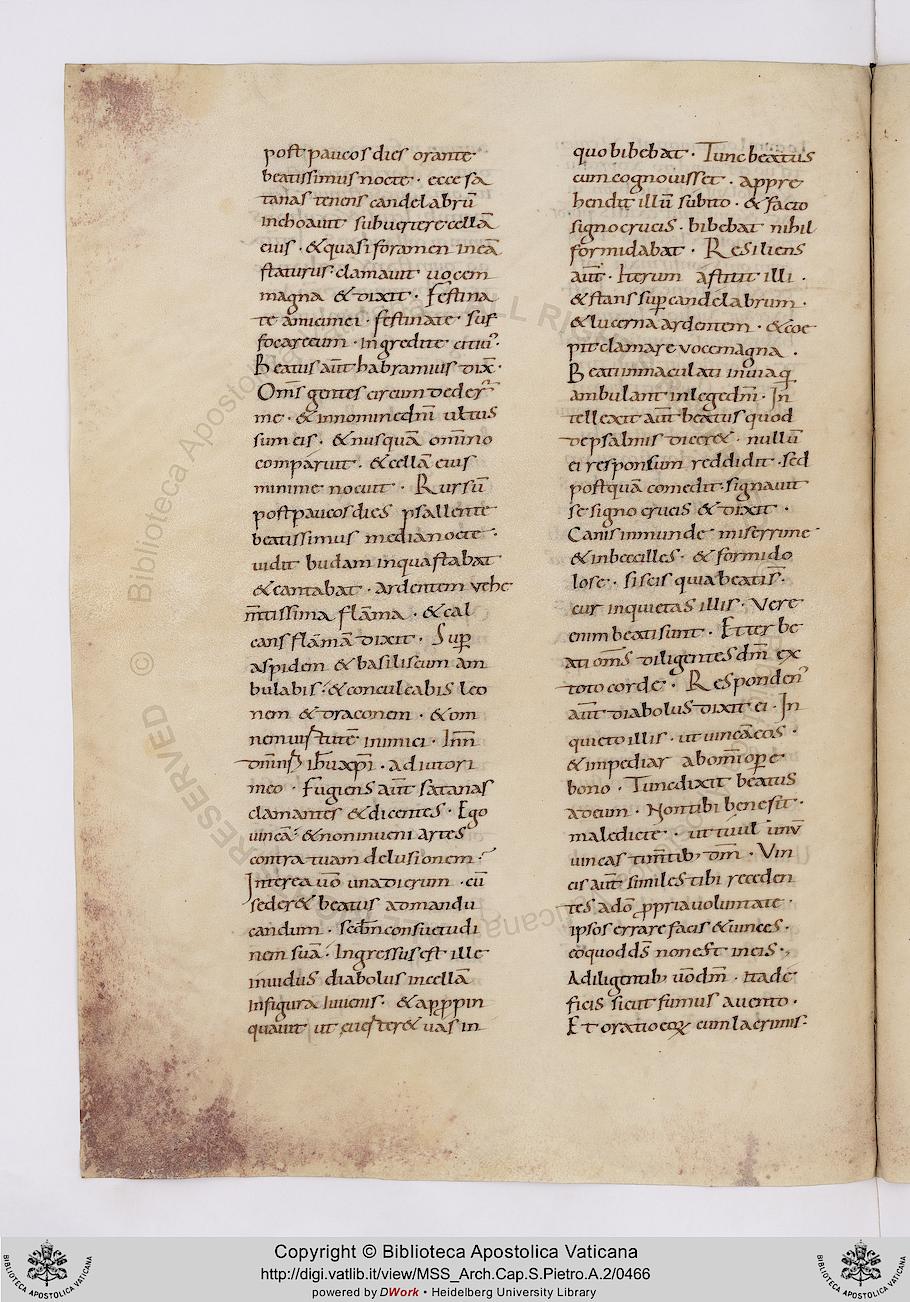 post paucos dies orante
beatissimus nocte · ecce sa
tanas tenens candelabrū
inchoauit subuertere cellā
eius · & quasi foramen in eā
staturus · clamauit uocem
magna & dixit · Festina
te amici mei · festinate · suf
focare eum · ingredite citiu᾽·
Beatus aūt habramius dix̄·
Om̄s gentes circum deder̄
me · & in nomine dn̄i ultus
sum eis · & nusquā om̄ino
comparuit · & cellā eius
minime nocuit · Rursū
post paucos dies psallente
beatissimus media nocte ·
uidit budam in qua stabat
& cantabat · ardentem vehe
m̄tissima flāma · & cal
cans flāmā dixit · Sup̄
aspidem & basiliscum am
bulabis · & conculcabis leo
nem & draconem · & om
nem uirtutē inimici · Inn̄
dn̄i ih̄u xp̄i · adiutori
meo · Fugiens aūt satanas
clamantes & dicentes · Ego
uincā · & non inueni artes
contra tuam delusionem ·
Interea uōo una dierum · cū
seder& beatus ad mandu
candum · secdn̄ consuetudi
nem suā · Ingressus est ille
inuidus diabolus in cellā
in figura iuuenis · & app̄pin
quauit ut euerter& uas in
quo bibebat · Tunc beatus
cum cognouisset · appre
hendit illū subito · & facto
signo crucis · bibebat nihil
formidabat · Resiliens
aūt · Iterum astitit illi ·
& stans sup̄ candelabrum ·
& lucerna ardentem · & coe
pit clamare voce magna ·
Beati immaculati in uia q̄
ambulant in lege dn̄i · In
tellexit aūt beatus quod
de psalmis dicer& · nullū
ei responsum reddidit · sed
postquā comedit · signauit
se signo crucis & dixit ·
Canis inmunde miserrime
& inbecilles · & formido
lose · si scis quia beatis̄·
cur inquietas illis · Vere
enim beati sunt · Et ter be
ati om̄s diligentes dm̄ ex
toto corde · Responden᾽
aūt diabolus dixit ei · In
quieto illis · ut uincā eos ·
& impediar ab om̄i ope
bono · Tunc dixit beatus
ad eum · Non tibi bene sit ·
maledicte ·
uincas tim̄tib; dm̄ · Vin
cis aūt similes tibi receden
tes a dō p̄pria voluntate ·
ipsos errare facis & uinces ·
eo quod ds̄ non est in eis ·,
A diligentib; uōo dm̄ · ita de
ficis sicut fumus a uento ·
Et oratio eoꝝ cum lacrimis ·
© Biblioteca Apostolica Vaticana
ALL RIGHTS RESERVED
Copyright © Biblioteca Apostolica Vaticana
http://digi.vatlib.it/view/MSS_Arch.Cap.S.Pietro.A.2/0466
powered by DWork • Heidelberg University Library
BIBLIOTECA APOSTOLICA VATICANA
BIBLIOTECA APOSTOLICA VATICANA